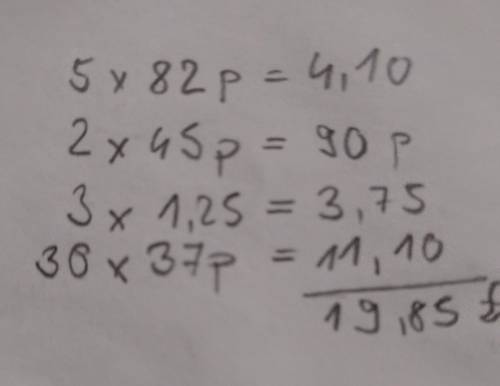 5 x 82 p = 4,10
2 x 45p = 90 p
3 x 1,25 = 3,75
30 x 37p = 11,10
19,85 £